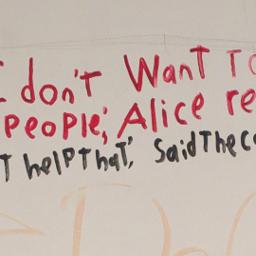 I don't Want To
People', Alice re
T helpThat', SaidThe C